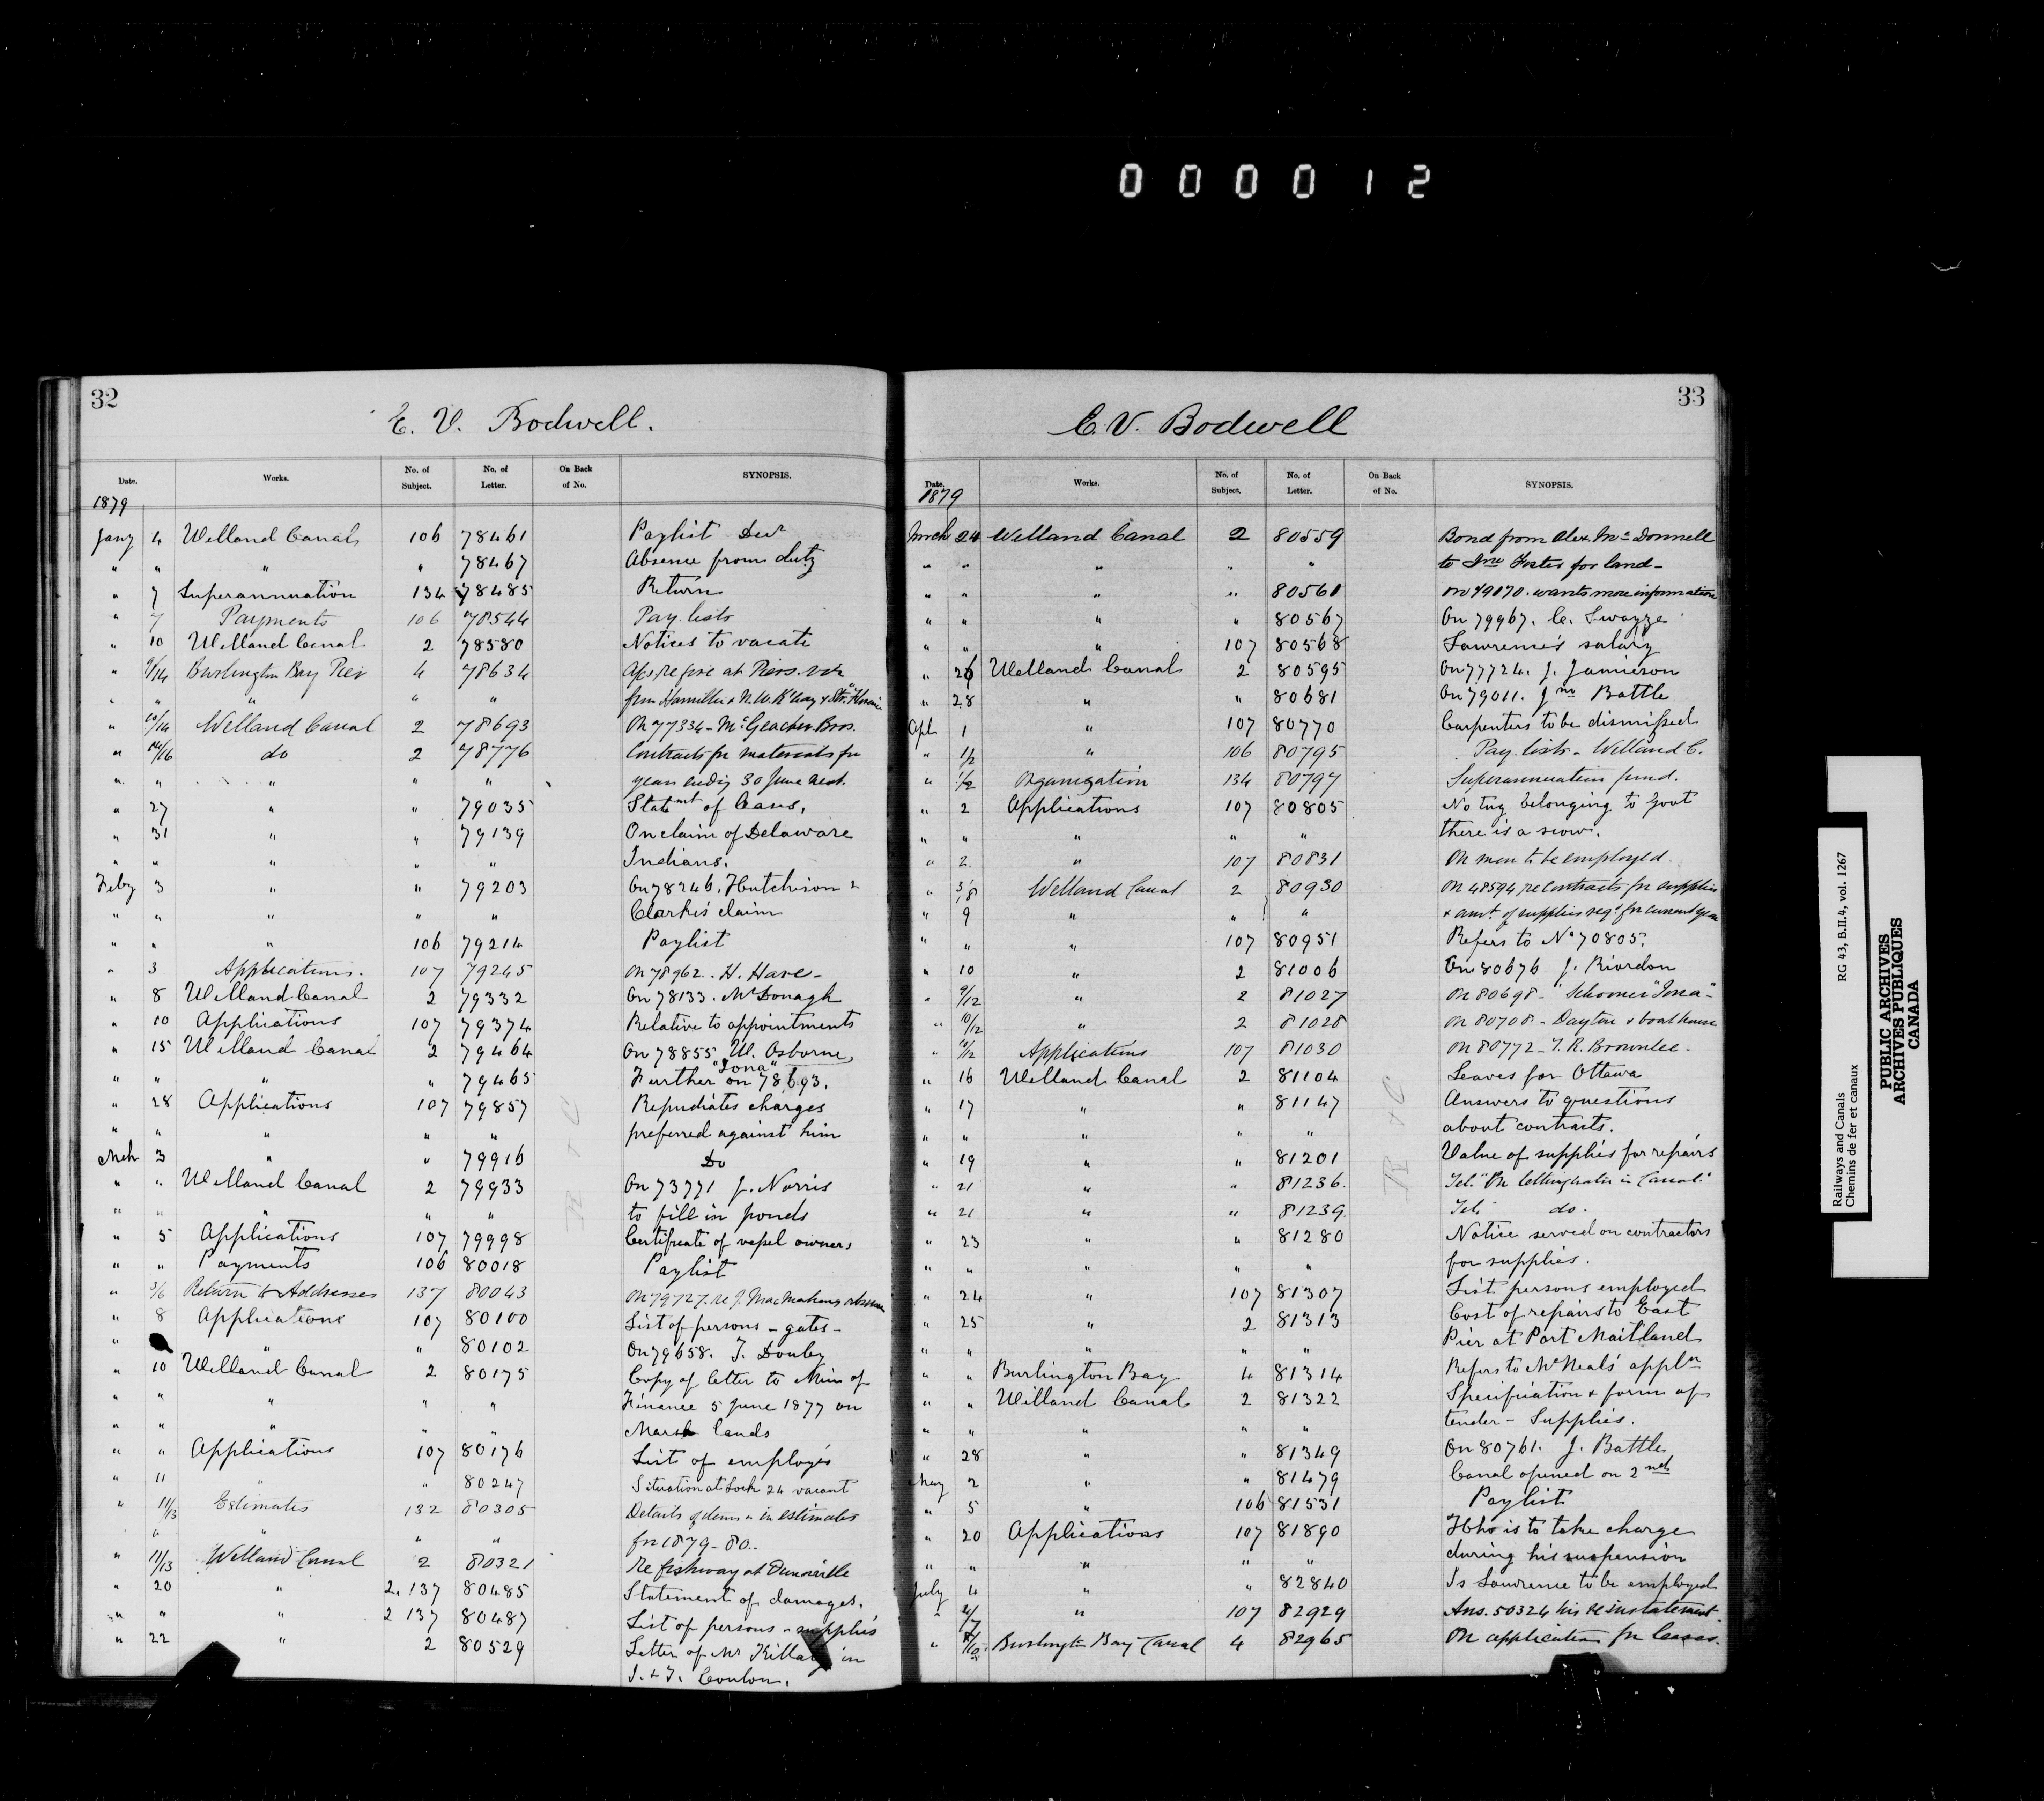 000012
32
E. V. Bodwell.
Date. Works. No. of Subject. No. of Letter. On Back of No. SYNOPSIS.
1879
Jany 4 Welland Canal 106 78461 Paylist Decr
" " " " 78467 Absence from duty
" 7 Superannuation 134 78485 Return
" 7 Payments 106 78544 Pay lists
" 10 Welland Canal 2 78580 Notices to vacate
" 9/14 Burlington Bay Pier 4 78634 re fire at Piers
" " " " " from Hamilton & N.W. R'way & Str.
" 10/14 Welland Canal 2 78693 On 77334 - McGeachen Bros.
" 14/16 do 2 78776 Contracts for materials for
" " " " " year ending 30 June next.
" 27 " " 79035 Statemt of leases,
" 31 " " 79139 On claim of Delaware
" " " " " Indians.
Feby 3 " " 79203 On 78246. Hutchison &
" " " " " Clarke's claim
" " " 106 79214 Paylist
" 3 Applications. 107 79245 On 78962. H. Hare -
" 8 Welland Canal 2 79332 On 78133. McDonagh
" 10 Applications 107 79374 Relative to appointments
" 15 Welland Canal 2 79464 On 78855 W. Osborne,
" " " " 79465 Further "Iona" on 78693.
" 28 Applications 107 79857 Repudiates charges
" " " " " preferred against him
Mch 3 " " 79916 Do
" " Welland Canal 2 79933 On 73771 J. Norris
" " " " " to fill in ponds
" 5 Applications 107 79998 Certificate of vessel owners
" " Payments 106 80018 Paylist
" 3/6 Return to Addresses 137 80043 On 79727. re J. MacMahons
" 8 Applications 107 80100 List of persons - gates -
" " " 80102 On 79658. T. Donley
" 10 Welland Canal 2 80175 Copy of letter to Min of
" " " " " Finance 5 June 1877 on
" " " " " Marsh lands
" " Applications 107 80176 List of employés
" 11 " " 80247 Situation at Lock 24 vacant
" 11/13 Estimates 132 80305 Details of items in estimates
" " " " for 1879-80..
" 11/13 Welland Canal 2 80321 re fishway at Dunnville
" 20 " 2. 137 80485 Statement of damages,
" " " 2 137 80487 List of persons - supplies
" 22 " 2 80529 Letter of Mr in
J. & T. Conlon.
R & C
33
E. V. Bodwell
Date. Works. No. of Subject. No. of Letter. On Back of No. SYNOPSIS.
1879
March 24 Welland Canal 2 80559 Bond from Alex. McDonnell
" " " " " to Jno Foster for land -
" " " " 80561 on 79070. wants more information
" " " " 80567 On 79967. C. Swayze
" " " 107 80568 Lawrence's salary
" 26 Welland Canal 2 80595 On 77724. J. Jamieson
" 28 " " 80681 On 79011. Jno Battle
Apl 1 " 107 80770 Carpenters to be dismissed
" 1/2 " 106 80795 Pay lists - Welland C.
" 1/2 Organization 134 80797 Superannuation fund.
" 2 Applications 107 80805 No tug belonging to Govt
" " " " " there is a scow.
" 2 " 107 80831 On men to be employed.
" 3/8 Welland Canal 2 80930 On 48594 re contracts for supplies
" 9 " " " & amt. of supplies reqd. for current year
" " " 107 80951 Refers to No 70805.
" 10 " 2 81006 On 80676 J. Riordon
" 9/12 " 2 81027 On 80698 - Schooner "Iona" -
" 10/12 " 2 81028 On 80708 - Dayton & boathouse
" 10/12 Applications 107 81030 On 80772 - T. R. Brownlee -
" 16 Welland Canal 2 81104 Leaves for Ottawa
" 17 " " 81147 Answers to questions
" " " " " about contracts.
" 19 " " 81201 Value of supplies for repairs
" 21 " " 81236. Tel: "On letting water in Canal."
" 21 " " 81239. Tel: do.
" 23 " " 81280 Notice served on contractors
" " " " " for supplies.
" 24 " 107 81307 List persons employed
" 25 " 2 81313 Cost of repairs to East
" " " " " Pier at Port Maitland
" " Burlington Bay 4 81314 Refers to McNeal's appln
" " Welland Canal 2 81322 Specification & form of
" " " " " tender - Supplies.
" 28 " " 81349 On 80761. J. Battle
May 2 " " 81479 Canal opened on 2nd
" 5 " 106 81531 Paylist
" 20 Applications 107 81890 Who is to take charge
" " " " " during his suspension
July 4 " " 82840 Is Lawrence to be employed
" 4/7 " 107 82929 Ans. 50324 his reinstatement.
" 8/10 Burlington Bay Canal 4 82965 On application for leases.
R & C
Railways and Canals RG 43, B.II.4, vol. 1267
Chemins de fer et canaux
PUBLIC ARCHIVES
ARCHIVES PUBLIQUES
CANADA